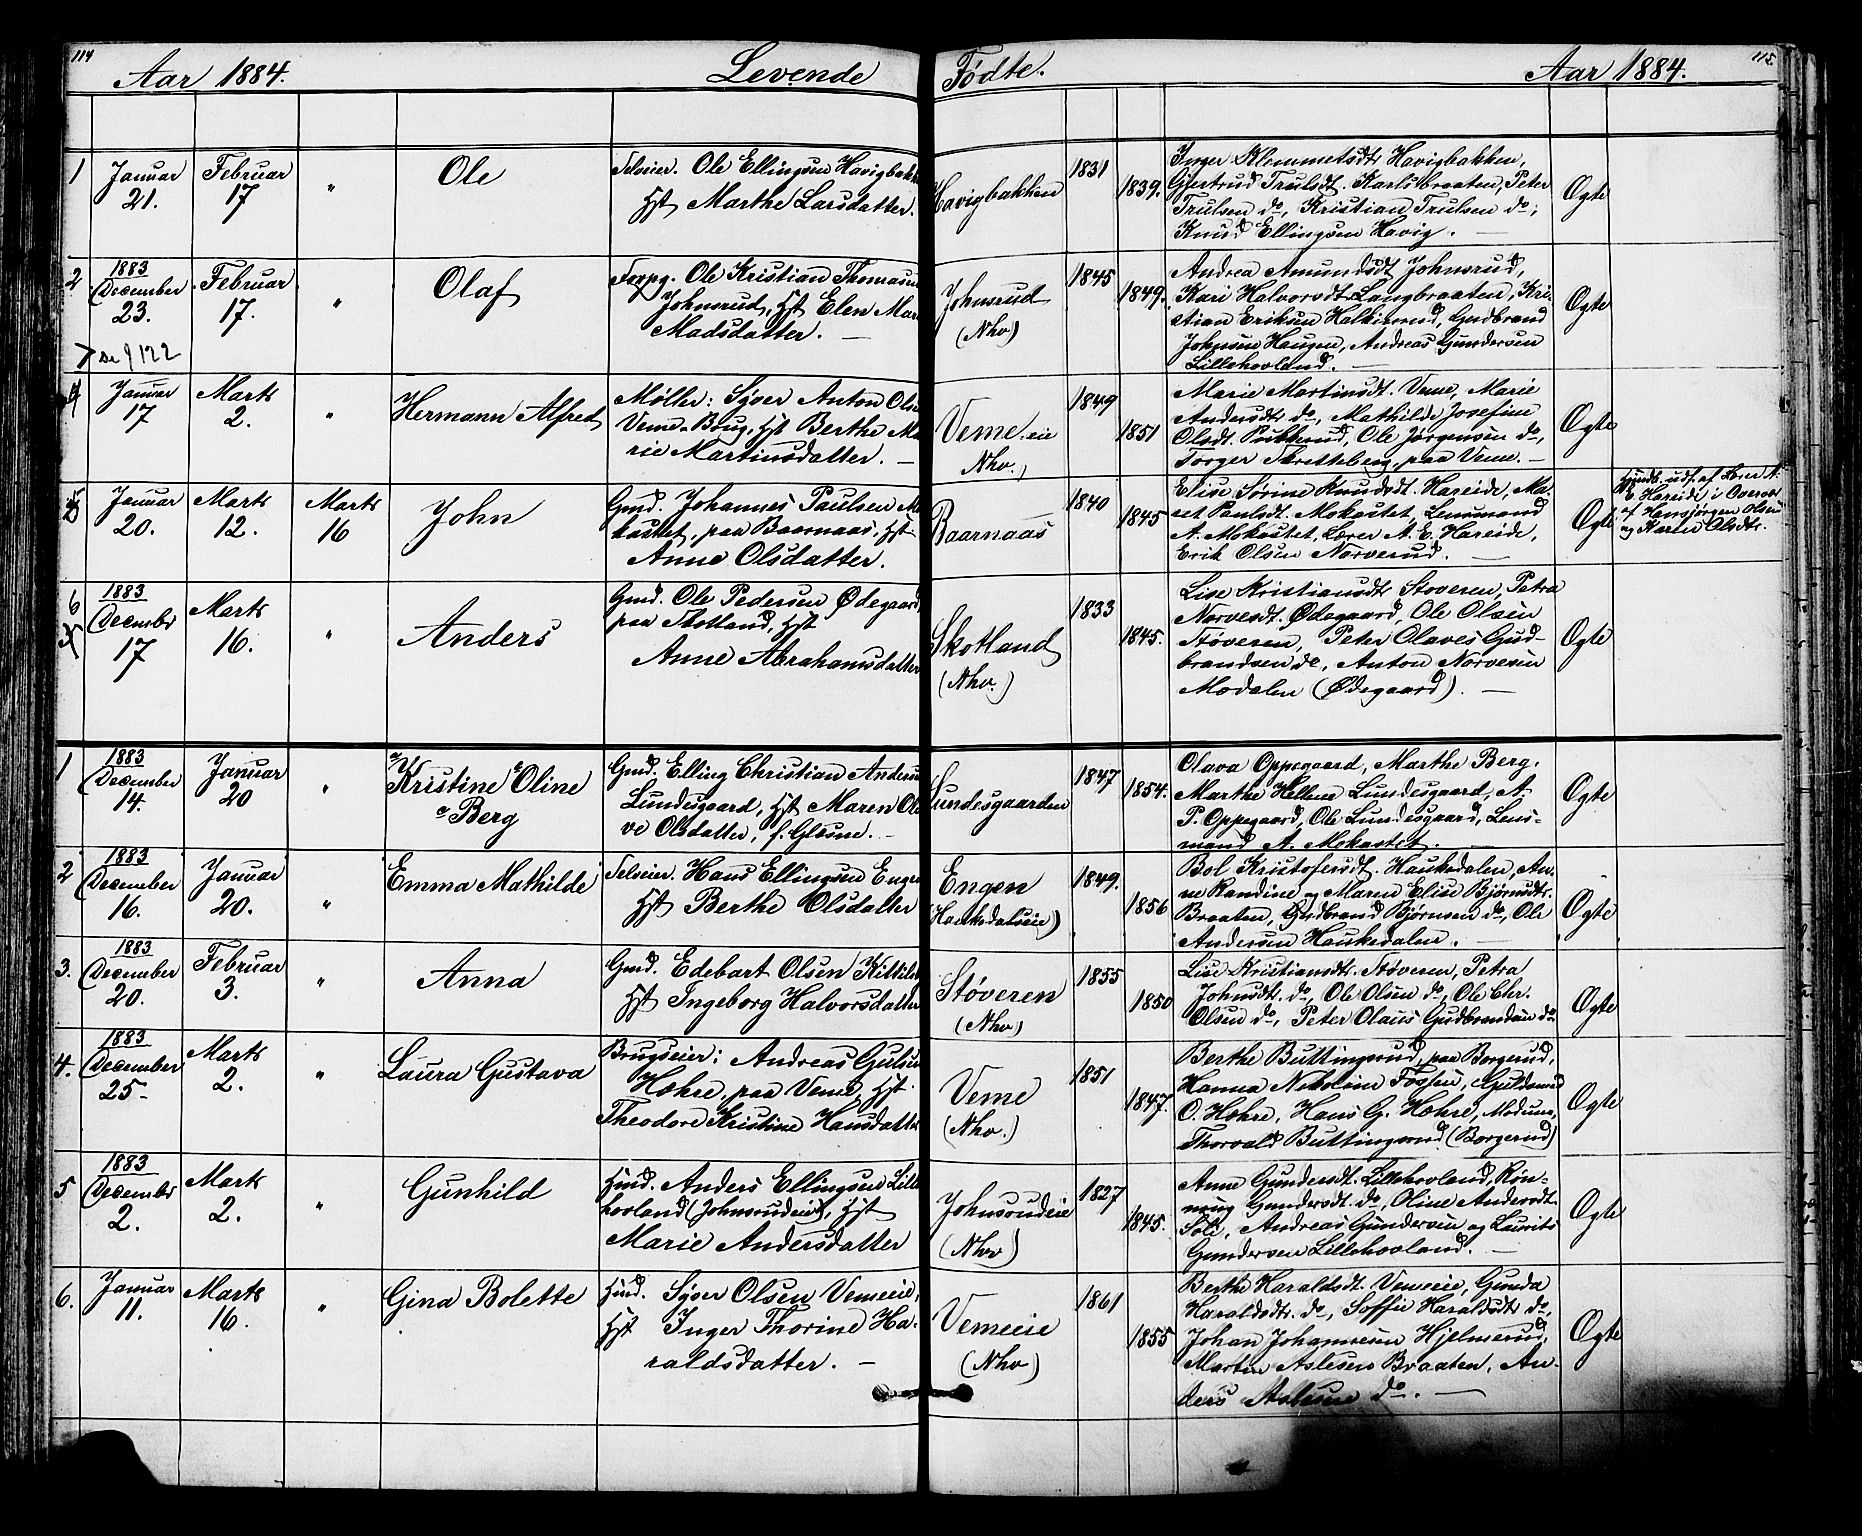 114
Aar 1884. Levende Fødte. Aar 1884. 115.
1 Januar 21. Februar 17 " Ole
Selveier. Ole Ellingsen Havigbakk
Hst Marthe Larsdatter.
Havigbakken 1831 1839.
Inger Klemmetsdtr Havigbakken,
Gjertrud Trulsdt. Karlsbraaten, Peter
Trulsen do, Kristian Trulsen do;
Knud Ellingsen Havig.
Ægte
2 1883 December 23. Februar 17. " Olaf
Forpg. Ole Kristian Thomasen
Johnsrud, Hst Elen Mar
Madsdatter.
Johnsrud (Nhv) 1845 1849.
Andrea Amundsdt Johnsrud,
Kari Halvorsdt Langbraaten, Kri-
stian Eriksen Halkinrud, Gudbrand
Johnsen Haugen, Andreas Gundersen
Lillehovland.
Ægte
se 122
4 Januar 17 Marts 2. " Hermann Alfred
Møller: Syver Anton Olse
Veme Brug, Hst Berthe Ma
rie Martinsdatter.
Veme eie (Nhv.) 1849 1851
Marie Martinsdt. Veme, Marie
Andersdtr do, Mathilde Josefine
Olsdt. Putterud, Ole Jørgensen do,
Torger Skretteberg, paa Veme.
Ægte
5 Januar 20. Marts 12. Marts 16 John
Gmd. Johannes Paulsen Mo
kastet, paa Baarnaas, Hst
Anne Olsdatter.
Baarnaas 1840 1845
Elise Sørine Knudsdt. Hareide, Ma-
ret Paulsdt. Mokastet, Lensmand
A. Mokastet, Lærer A. E. Hareide,
Erik Olsen Norverud.
Ægte
Hjmdt. udf. af Lærer A.
E. Hareide i Overvær
af Hansjørgen Olsen
og Karen Olsdtr.
6 1883 December 17 Marts 16. " Anders
Gmd. Ole Pedersen Ødegaard
paa Skotland, Hst
Anne Abrahamsdatter
Skotland (Nhv.) 1833 1845.
Lise Kristiansdtr Støveren, Petra
Norvesdt. Ødegaard, Ole Olsen
Støveren, Peter Olaves Gud-
brandsen do, Anton Norvesen
Modalen (Ødegaard).
Ægte
1 1883 December 14. Januar 20 " Kristine Oline
Berg
Gmd. Elling Christian Anders
Lundesgaard, Hst Maren Ole
ve Olsdatter, f. Glesne.
Lundesgaarden 1847 1854.
Olava Oppegaard, Marthe Berg,
Marthe Hellene Lundesgaard, A.
P. Oppegaard, Ole Lundesgaard, Lens-
mand A. Mokastet.
Ægte
2 1883 December 16. Januar 20. " Emma Mathilde
Selveier. Hans Ellingsen Engen
Hst Berthe Olsdatter
Engen (Haukedalseie) 1849. 1856
Bol Kristofersdt. Haukedalen, An-
ne Randine og Maren Elise Bjørnsdtr.
Braaten, Gudbrand Bjørnsen do, Ole
Andersen Haukedalen.
Ægte
3. 1883 December 20. Februar 3. " Anna
Gmd. Edebart Olsen Kittils
Hst Ingeborg Halvorsdatter
Støveren (Nhv) 1855 1850
Lise Kristiansdtr. Støveren, Petra
Johnsdt. do, Ole Olsen do, Ole Chr.
Olsen do, Peter Olaus Gudbrandsen do
Ægte
4. 1883 December 25 Marts 2. " Laura Gustava
Brugseier: Andreas Gulsen
Hæhre, paa Veme, Hst.
Theodore Kristine Hansdatter
Veme (Nhv.) 1851 1847.
Berthe Buttingsrud, paa Borgerud,
Hanna Nikoline Fossen, Guldsmed
O. Hæhre, Hans G. Hæhre, Modum,
Thorvald Buttingsrud (Borgerud)
Ægte
5 1883 December 2. Marts 2. " Gunhild
Hmd. Anders Ellingsen Lille
hovland (Johnsrudeie), Hst
Marie Andersdatter
Johnsrudeie (Nhv) 1827 1845.
Anne Gundersdt. Lillehovland, Røn-
naug Gundersdt. do, Oline Andersdt.
Sole, Andreas Gundersen og Laurits
Gundersen Lillehovland.
Ægte
6. Januar 11. Marts 16. " Gina Bolette
Hmd. Syver Olsen Vemeeie,
Hst Inger Thorine Ha-
raldsdatter.
Vemeeie (Nhv) 1861 1855
Berthe Haraldsdt. Vemeeie, Gunda
Haraldsdtr. do, Soffie Haraldsdtr do,
Johan Johannesen Hjelmerud,
Marten Aslesen Braaten, An-
ders Aslesen do.
Ægte